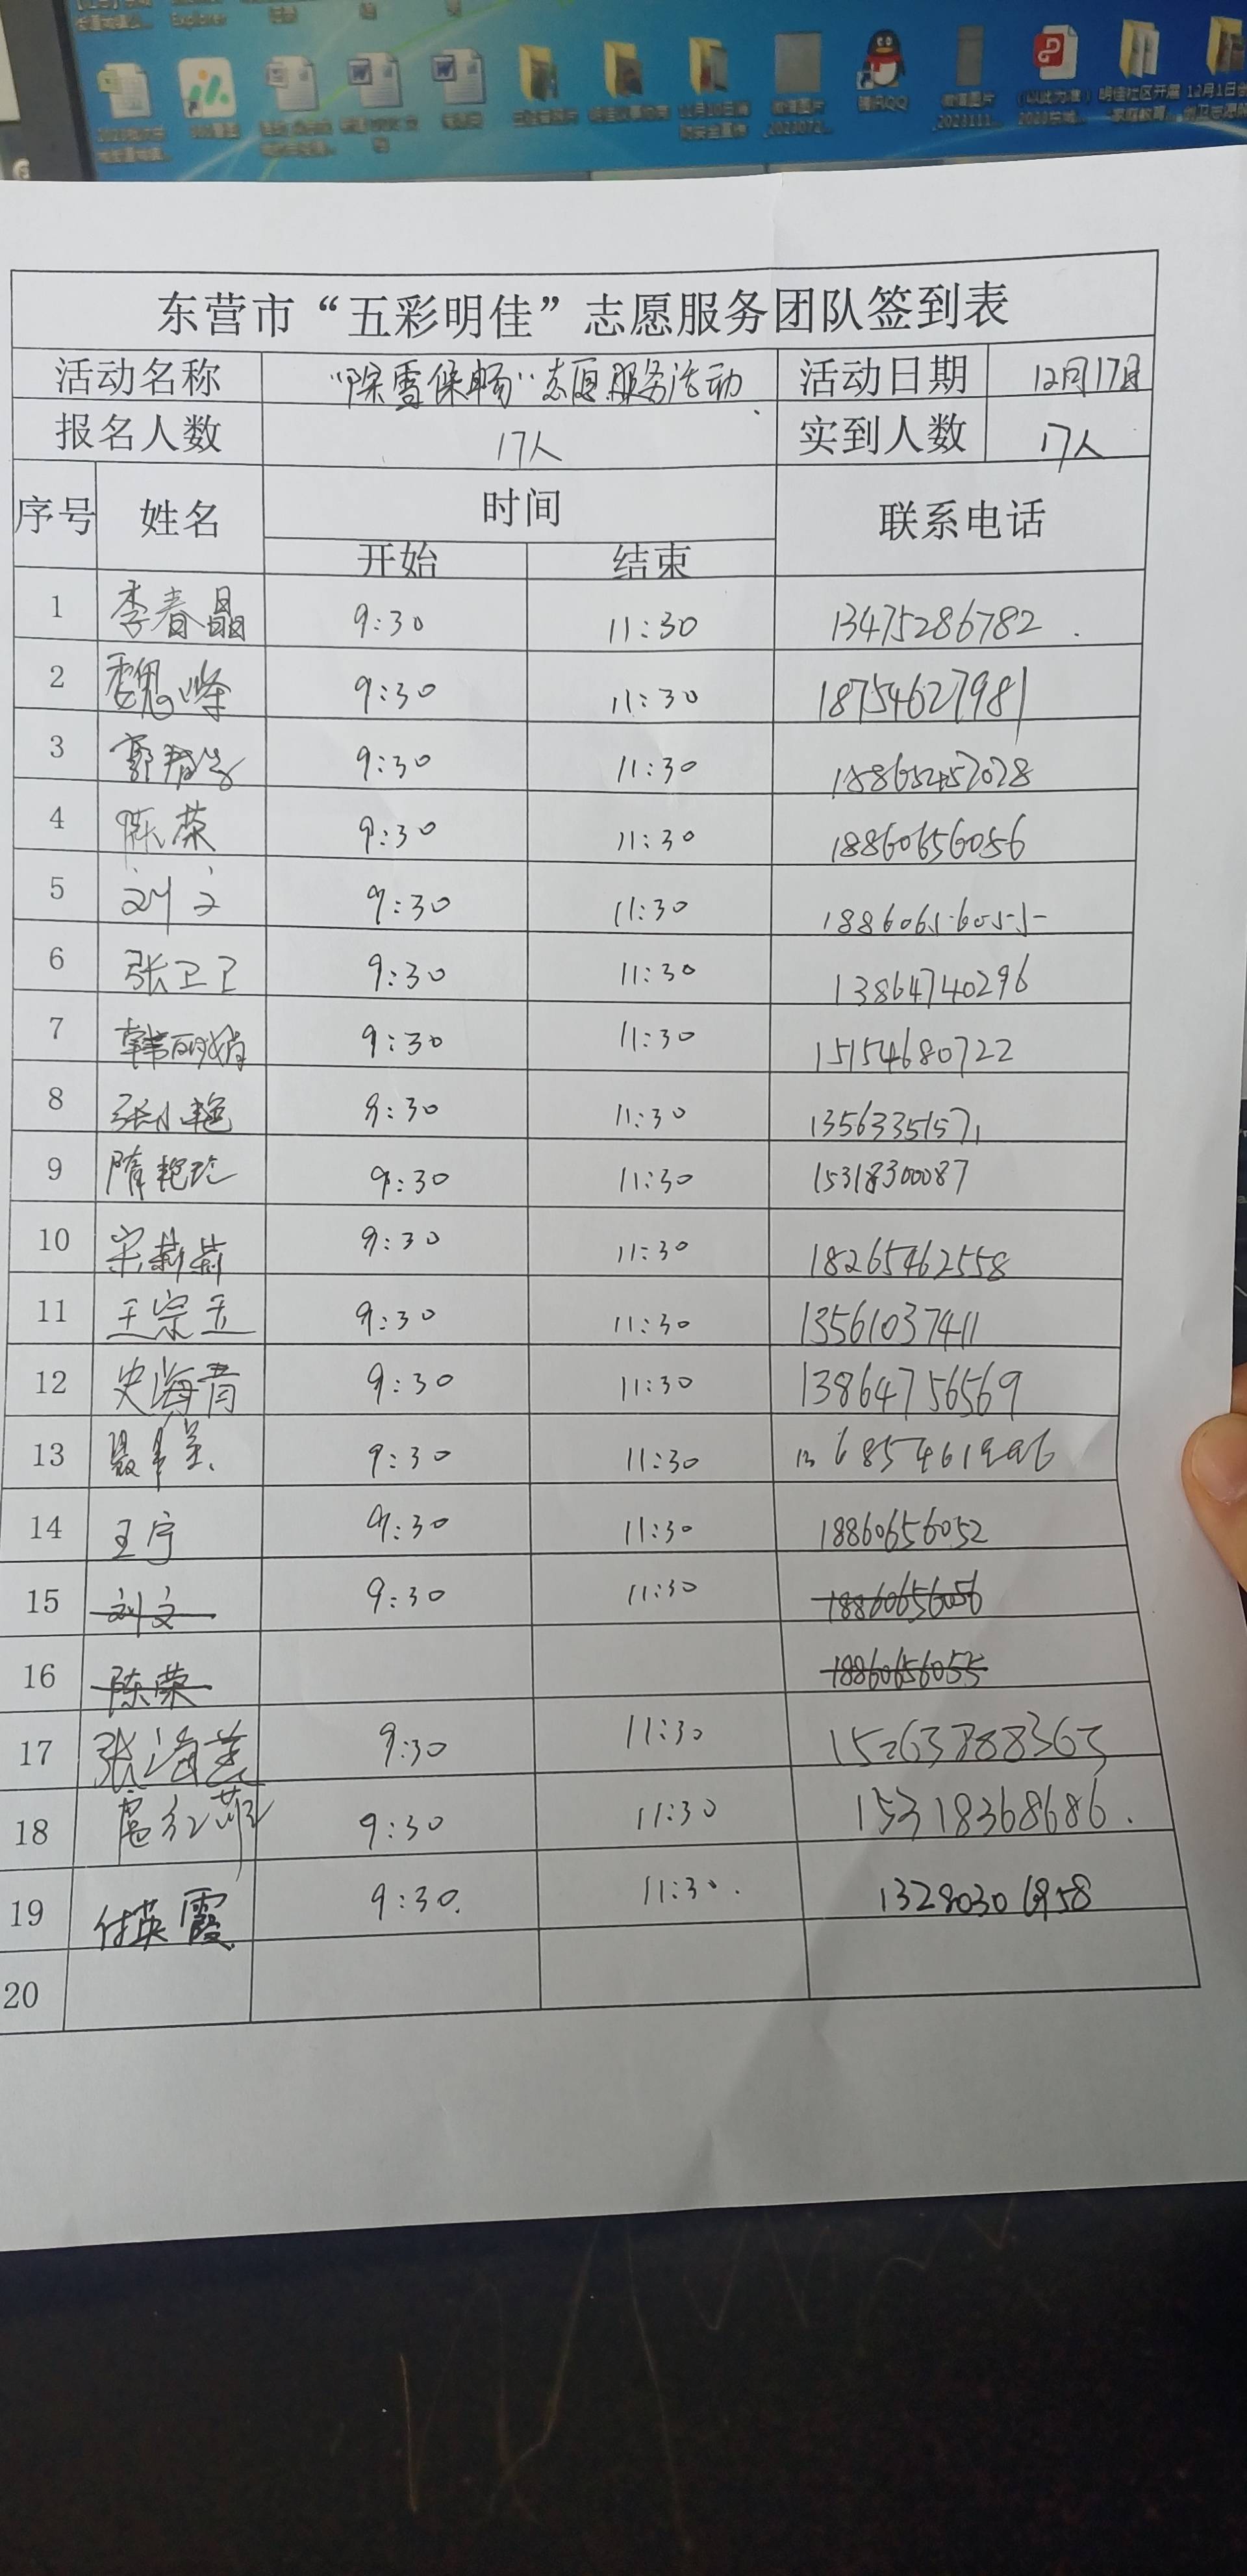 腾讯QQ
东营市“五彩明佳”志愿服务团队签到表
活动名称 “除雪保畅”志愿服务活动 活动日期 12月17日
报名人数 17人 实到人数 17人
序号 姓名 时间 联系电话
开始 结束
1 李春晶 9:30 11:30 13475286782
2 魏峰 9:30 11:30 18754627981
3 9:30 11:30
4 陈荣 9:30 11:30 18860656056
5 刘文 9:30 11:30 18860656055
6 张卫卫 9:30 11:30 13864740296
7 韩丽娟 9:30 11:30 15154680722
8 张小艳 9:30 11:30 13563351571
9 隋艳玲 9:30 11:30 15318300087
10 宋莉莉 9:30 11:30 18265462558
11 王宗玉 9:30 11:30 13561037411
12 史海青 9:30 11:30 13864756569
13 9:30 11:30
14 王宁 9:30 11:30 18860656052
15 刘文 9:30 11:30 18860656056
16 陈荣 18860656055
17 张海燕 9:30 11:30 15263888363
18 9:30 11:30 15318368686
19 付英霞 9:30 11:30
20